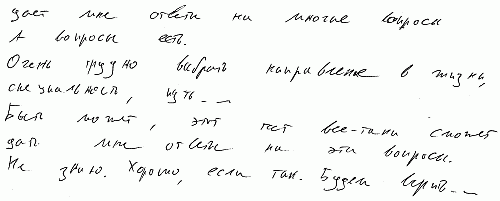 дает мне ответы на многие вопросы
А вопросы есть.
Очень трудно выбрать направление в жизни,
специальность, путь...
Быть может, этот тест все-таки сможет
дать мне ответы на эти вопросы.
Не знаю. Хорошо, если так. Будем верить...